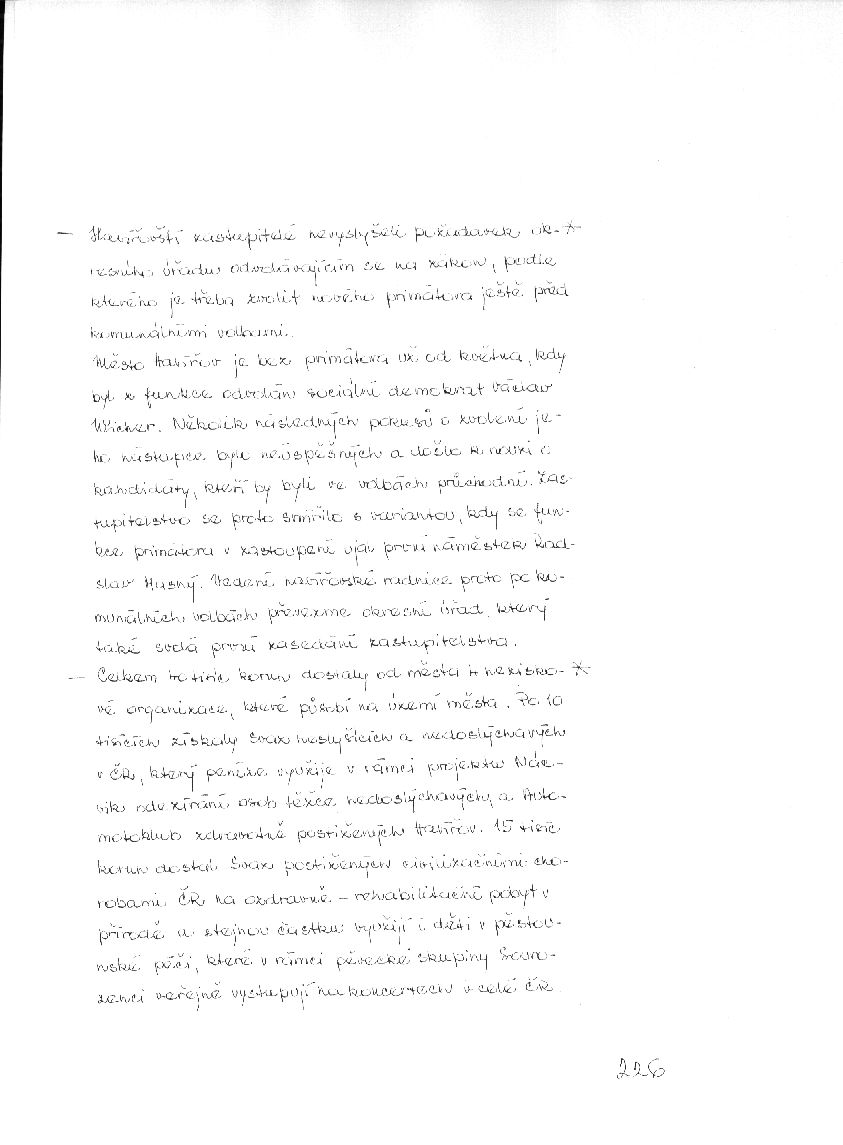 — Havířovští zastupitelé nevyslyšeli požadavek ok- *
resního úřadu odvolávajícím se na zákon, podle
kterého je třeba zvolit nového primátora ještě před
komunálními volbami.
Město Havířov je bez primátora už od května, kdy
byl z funkce odvolán sociální demokrat Václav
Wicher. Několik následných pokusů o zvolení je-
ho nástupce bylo neúspěšných a došla i nouzi o
kandidáty, kteří by byli ve volbách průchodní. Zas-
tupitelstvo se proto smířilo s variantou, kdy se fun-
kce primátora v zastoupení ujal první náměstek Rad-
slav Husný. Vedení havířovské radnice proto po ko-
munálních volbách převezme okresní úřad, který
také svolá první zasedání zastupitelstva.
— Celkem tisíc korun dostaly od města 4 nezisko- *
vé organizace, které působí na území města. Po 10
tisících získaly Svaz neslyšících a nedoslýchavých
v ČR, který peníze využije v rámci projektu Nác-
vik odezírání osob těžce nedoslýchavých, a Auto-
motoklub zdravotně postižených Havířov. 15 tisíc
korun dostal Svaz postižených civilizačními cho-
robami ČR na ozdravně – rehabilitační pobyt v
přírodě a stejnou částku využijí i děti v pěstou-
nské péči, které v rámci pěvecké skupiny Souro-
zenci veřejně vystupují na koncertech v celé ČR.
226